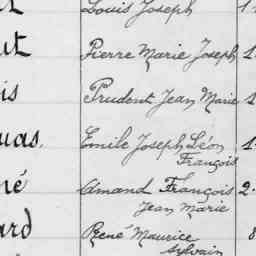 Louis Joseph
ut Pierre Marie Joseph
is Prudent Jean Marie
uas. Emile Joseph Léon
François
né Amand François 2
Jean Marie
ard René Maurice 8
Sylvain